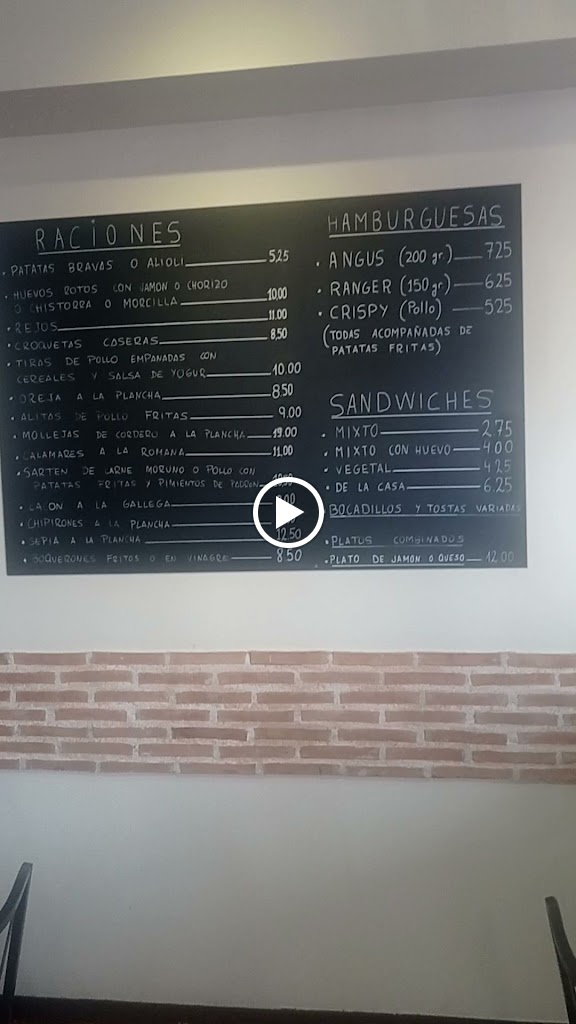 RACIONES
• PATATAS BRAVAS O ALIOLI 5,25
• HUEVOS ROTOS CON JAMON O CHORIZO
O CHISTORRA O MORCILLA 10,00
• REJOS 11,00
• CROQUETAS CASERAS 8,50
• TIRAS DE POLLO EMPANADAS CON
CEREALES Y SALSA DE YOGUR 10,00
• OREJA A LA PLANCHA 8,50
• ALITAS DE POLLO FRITAS 9,00
• MOLLEJAS DE CORDERO A LA PLANCHA 19.00
• CALAMARES A LA ROMANA 11,00
• SARTEN DE CARNE MORUNO O POLLO CON
PATATAS FRITAS Y PIMIENTOS DE PADRON
• LACON A LA GALLEGA
• CHIPIRONES A LA PLANCHA
• SEPIA A LA PLANCHA 12,50
• BOQUERONES FRITOS O EN VINAGRE 8,50
HAMBURGUESAS
• ANGUS (200 gr) 7,25
• RANGER (150 gr) 6,25
• CRISPY (Pollo) 5,25
(TODAS ACOMPAÑADAS DE
PATATAS FRITAS)
SANDWICHES
• MIXTO 2,75
• MIXTO CON HUEVO 4,00
• VEGETAL 4,25
• DE LA CASA 6,25
BOCADILLOS Y TOSTAS VARIADAS
• PLATOS COMBINADOS
• PLATO DE JAMON O QUESO 12,00